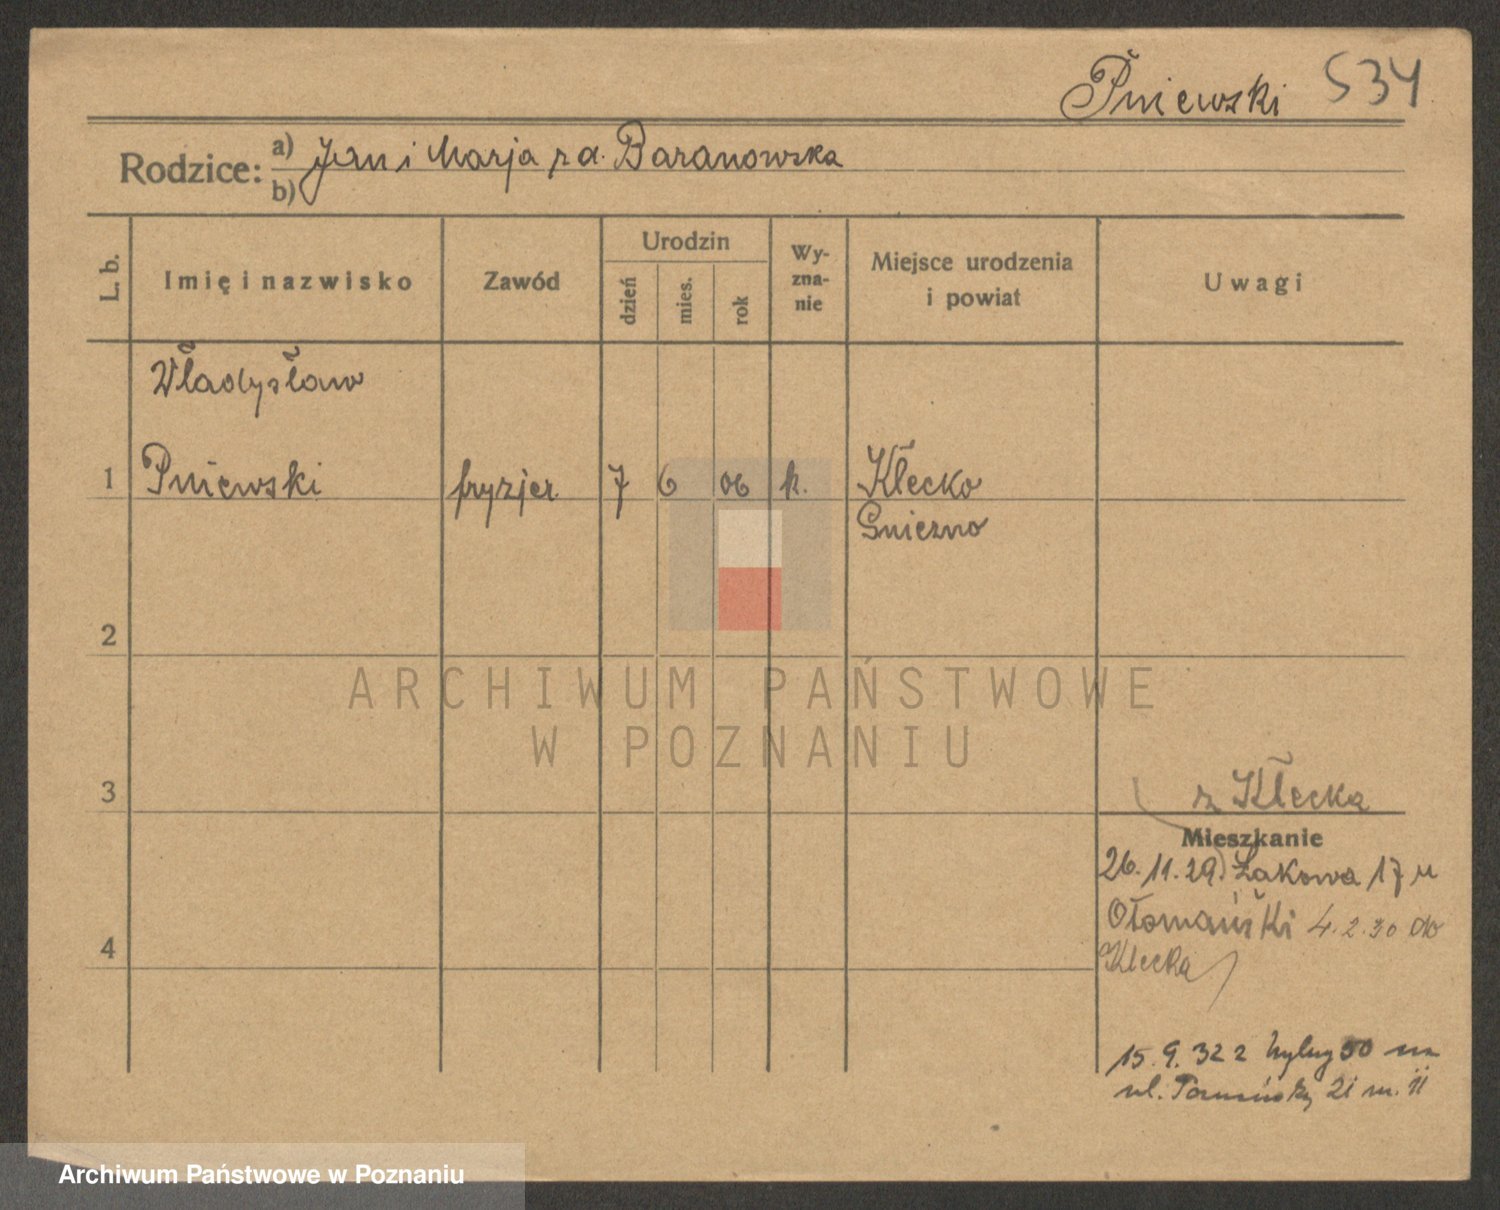 Pniewski 534
Rodzice: a) Jan i Marja z d. Baranowska
b)
L. b. Imię i nazwisko Zawód Urodzin dzień mies. rok Wy-zna-nie Miejsce urodzenia i powiat Uwagi
Władysław
1 Pniewski fryzjer 7 6 06 k. Kłecko
Gniezno
2
ARCHIWUM PAŃSTWOWE
W POZNANIU
3 z Kłecka
Mieszkanie
26.11.29. Łąkowa 17 u
Ołomański 4.2.30 do
4 Klecka
15.9.32 z 50 na
ul. 21 m. 11
Archiwum Państwowe w Poznaniu